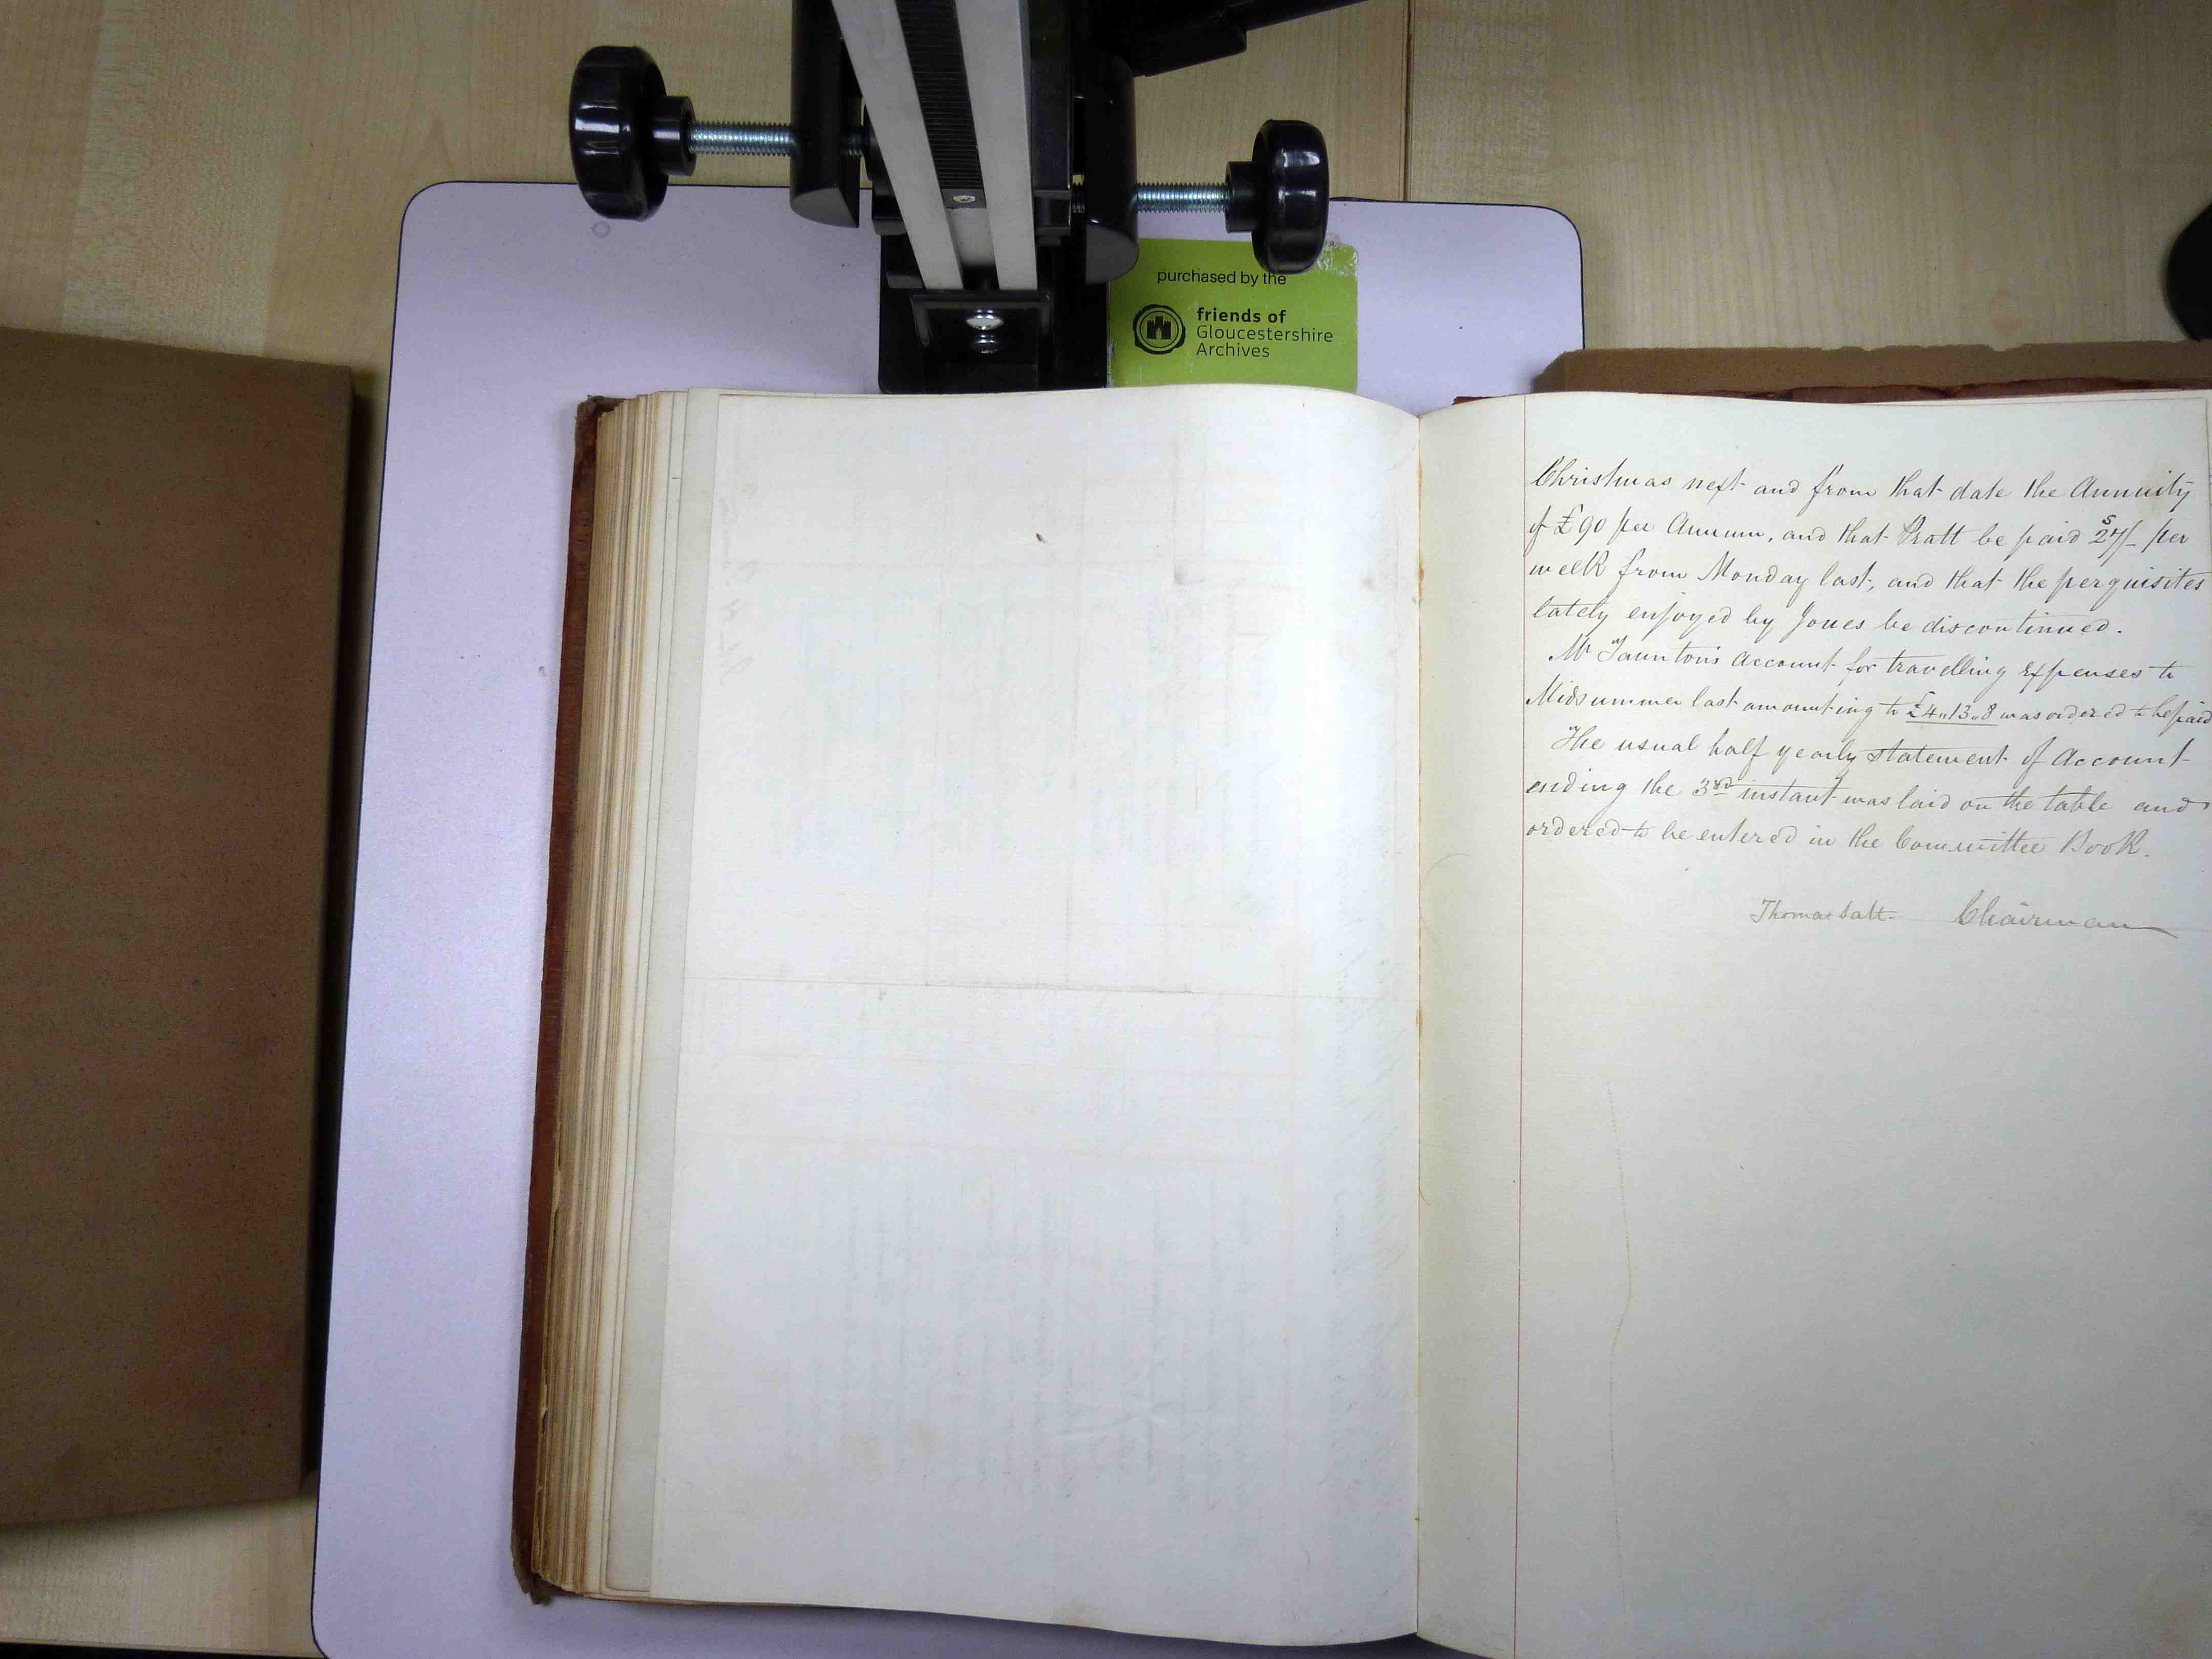 purchased by the
friends of
Gloucestershire
Archives
Christmas next and from that date the Annuity
of £90 per Annum, and that Pratt be paid 27/- per
week from Monday last, and that the perquisites
lately enjoyed by Jones be discontinued.
Mr Taunton's Account for travelling expenses to
Midsummer last amounting to £4„13„8 was ordered to be paid
The usual half yearly statement of Account
ending the 3rd instant was laid on the table and
ordered to be entered in the Committee Book.
Thomas Salt Chairman